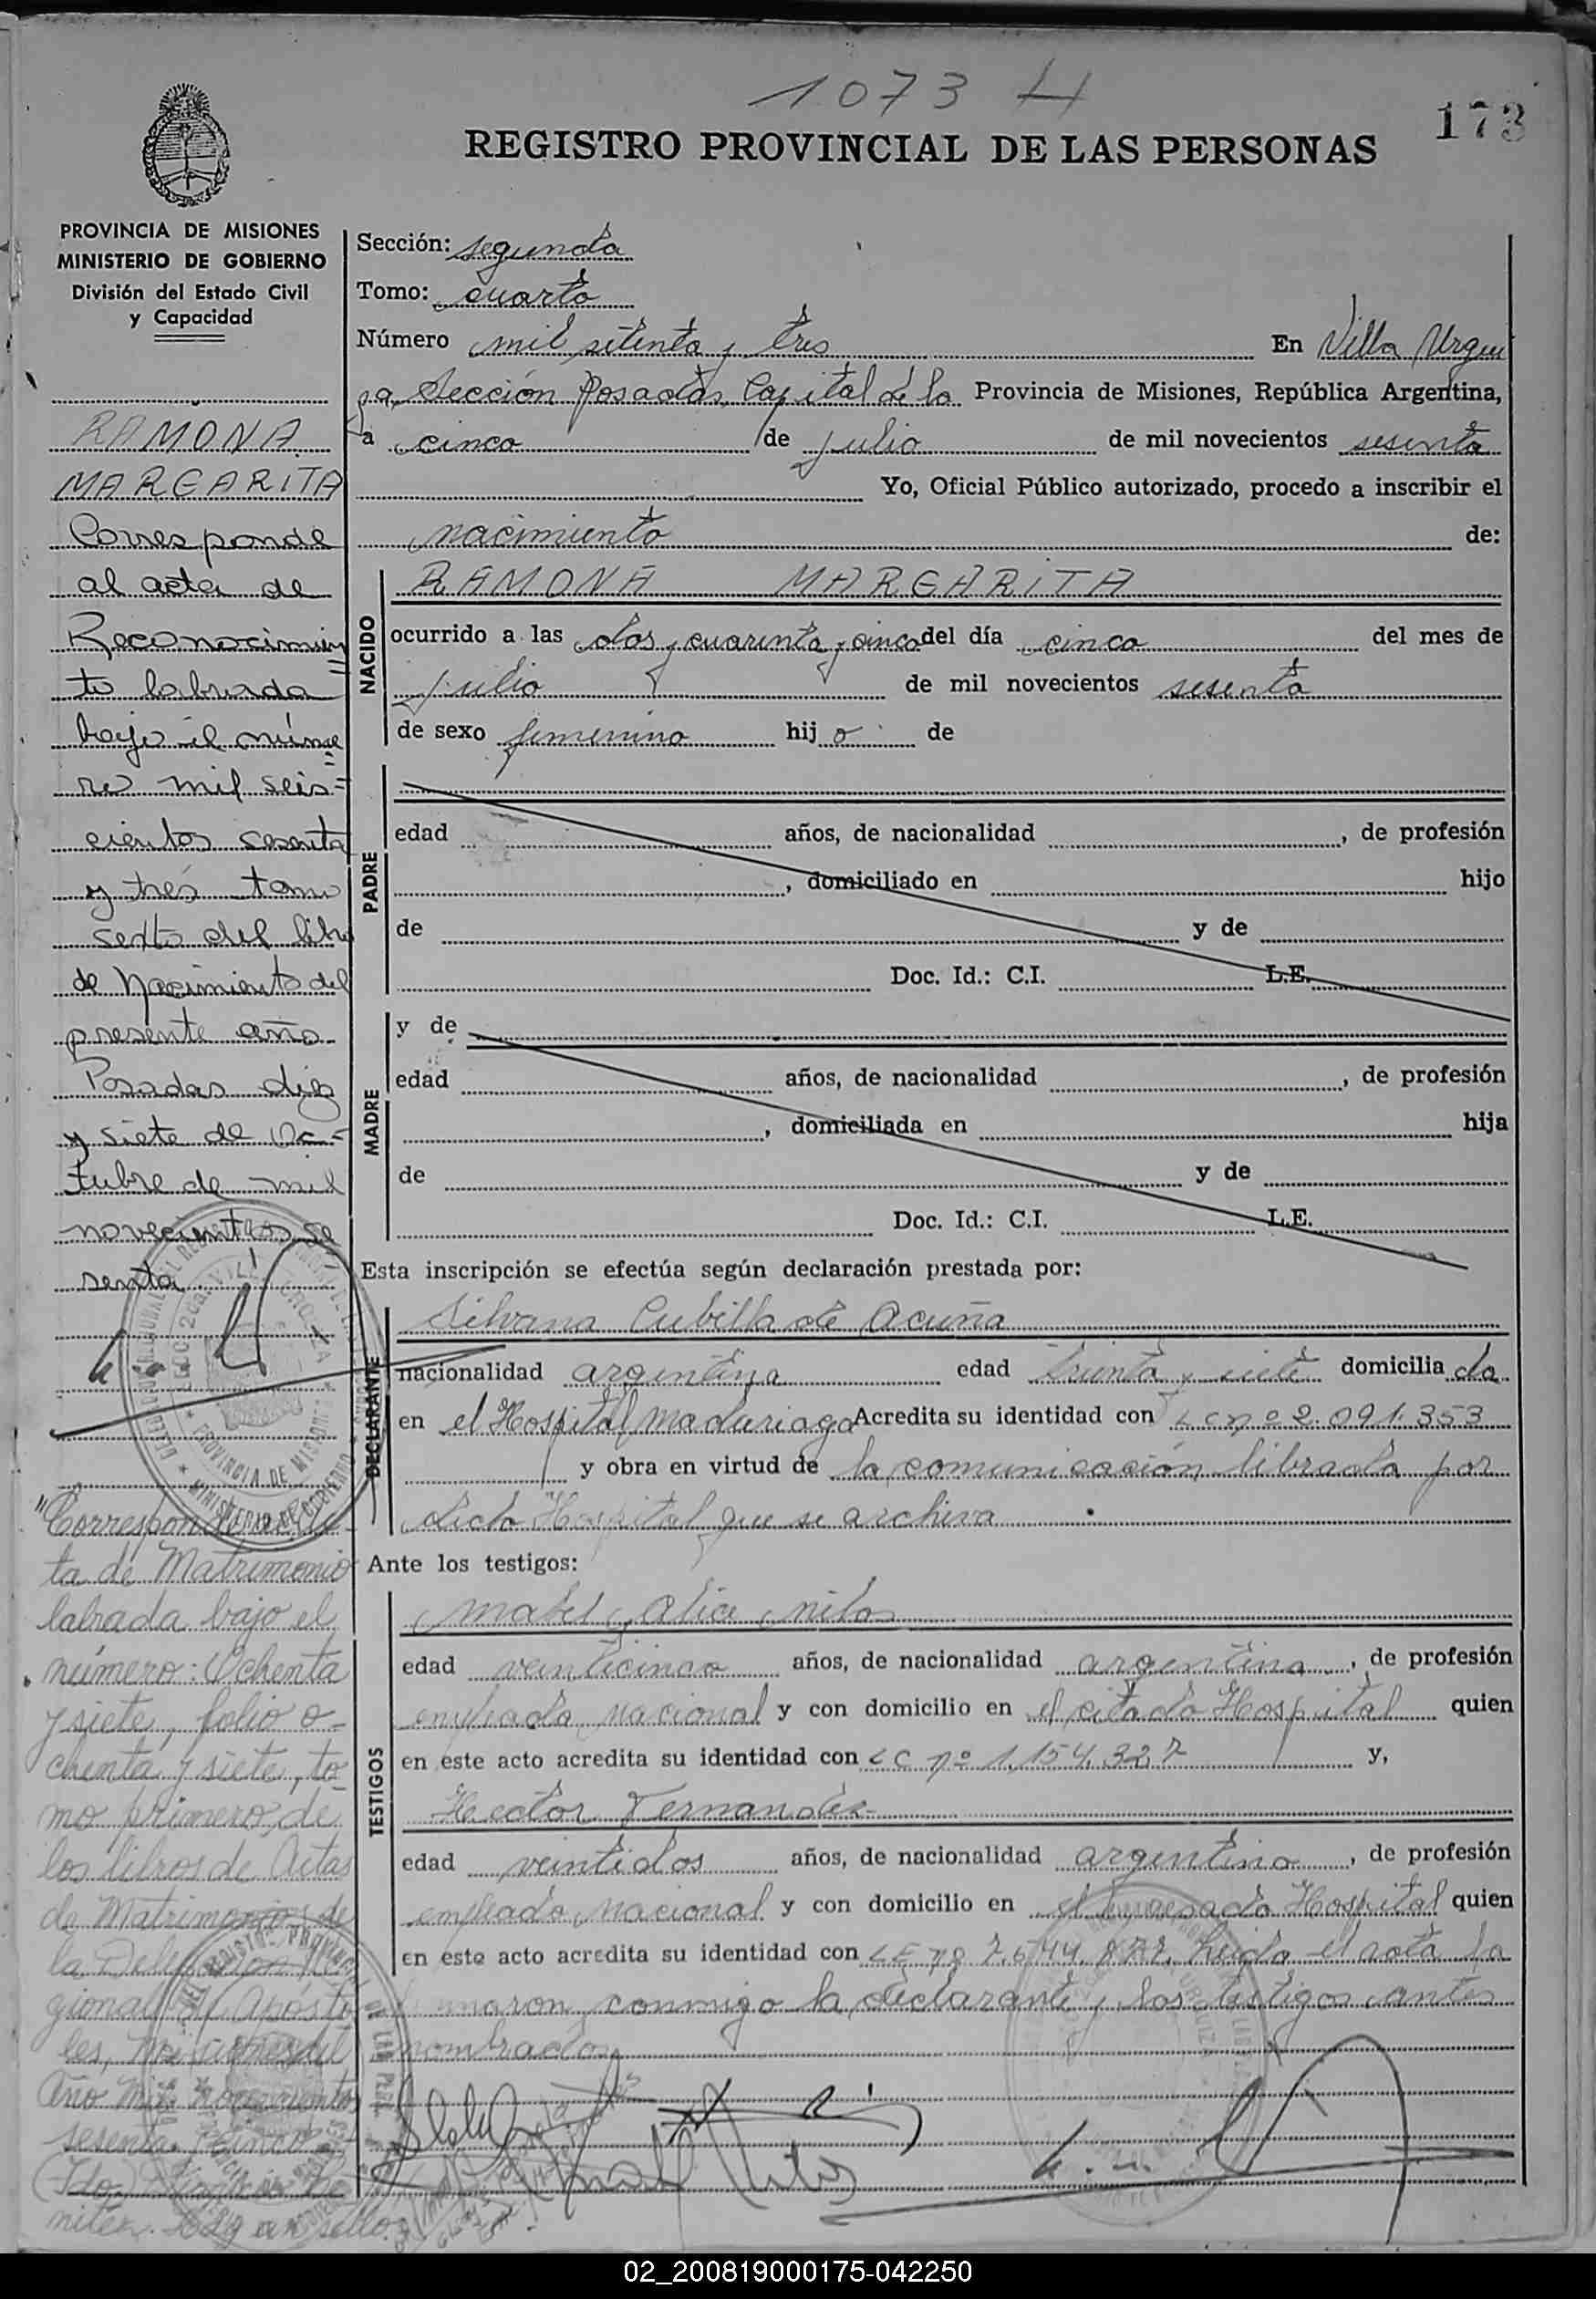 1073
173
REGISTRO PROVINCIAL DE LAS PERSONAS
PROVINCIA DE MISIONES
MINISTERIO DE GOBIERNO
División del Estado Civil
y Capacidad
RAMONA
MARGARITA
Corresponde
al acta de
Reconocimien
to labrada
bajo el núme
ro mil seis-
cientos sesenta
y tres tomo
sexto del libro
de Nacimiento del
presente año
Posadas diez
y siete de Oc-
tubre de mil
novecientos se
senta
"Corresponde
ta de Matrimonio
labrada bajo el
número: Ochenta
y siete, folio o-
chenta y siete, to-
mo primero de
los libros de Actas
de Matrimonios de
la
gional Apósto
les, Misiones del
Año Mil novecientos
sesenta
sello.
Sección: segunda
Tomo: cuarto
Número mil setenta y tres En Villa Urqui
za Sección Posadas, Capital de la Provincia de Misiones, República Argentina,
a cinco de julio de mil novecientos sesenta
Yo, Oficial Público autorizado, procedo a inscribir el
nacimiento de:
NACIDO
RAMONA MARGARITA
ocurrido a las dos y cuarenta y cinco del día cinco del mes de
julio de mil novecientos sesenta
de sexo femenino hij a de
PADRE
edad años, de nacionalidad , de profesión
, domiciliado en hijo
de y de
Doc. Id.: C.I. L.E.
MADRE
y de
edad años, de nacionalidad , de profesión
, domiciliada en hija
de y de
Doc. Id.: C.I. L.E.
Esta inscripción se efectúa según declaración prestada por:
DECLARANTE
Silvana Cubilla de Acuña
nacionalidad argentina edad treinta y siete domicilia da
en el Hospital Madariaga Acredita su identidad con L C nº 2.091.353
y obra en virtud de la comunicación librada por
dicho Hospital que se archiva
Ante los testigos:
TESTIGOS
Mabel Alice
edad veinticinco años, de nacionalidad argentina, de profesión
empleada nacional y con domicilio en el citado Hospital quien
en este acto acredita su identidad con L C nº 1.154.327 y,
Hector Fernandez
edad veintidos años, de nacionalidad argentino, de profesión
empleado nacional y con domicilio en el Hospital quien
en este acto acredita su identidad con L E nº leida el acta la
conmigo la declarante y los testigos antes
nombrados
02_200819000175-042250